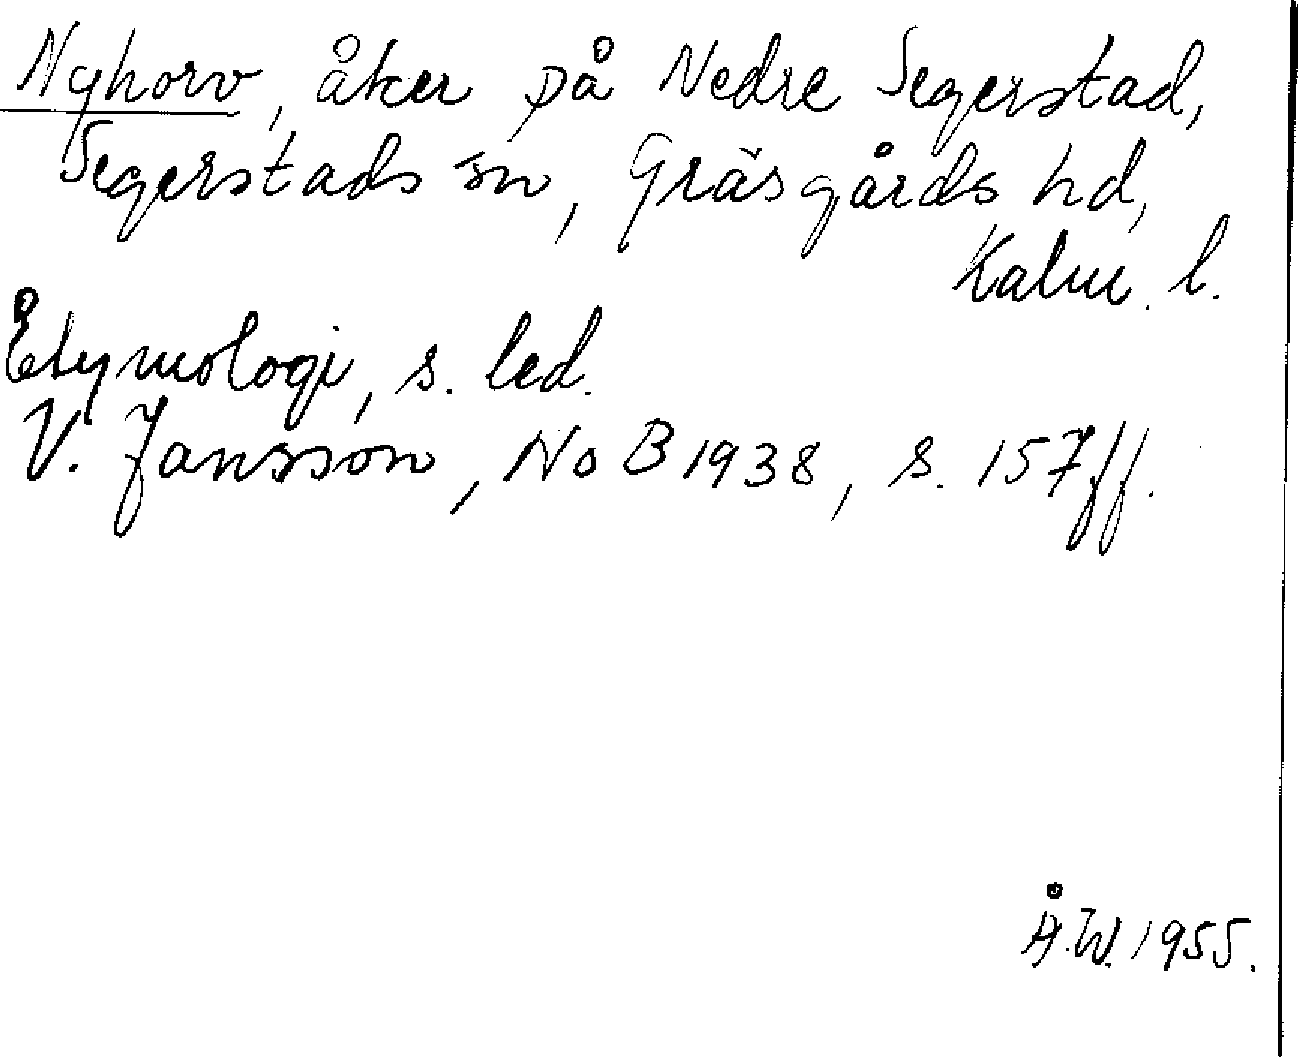 Nyhorv, åker på Nedre Segerstad,
Segerstads sn, Gräsgårds hd,
Kalm. l.
Etymologi, s. led.
V. Jansson, NoB 1938, s. 157ff.
Å.W. 1955.